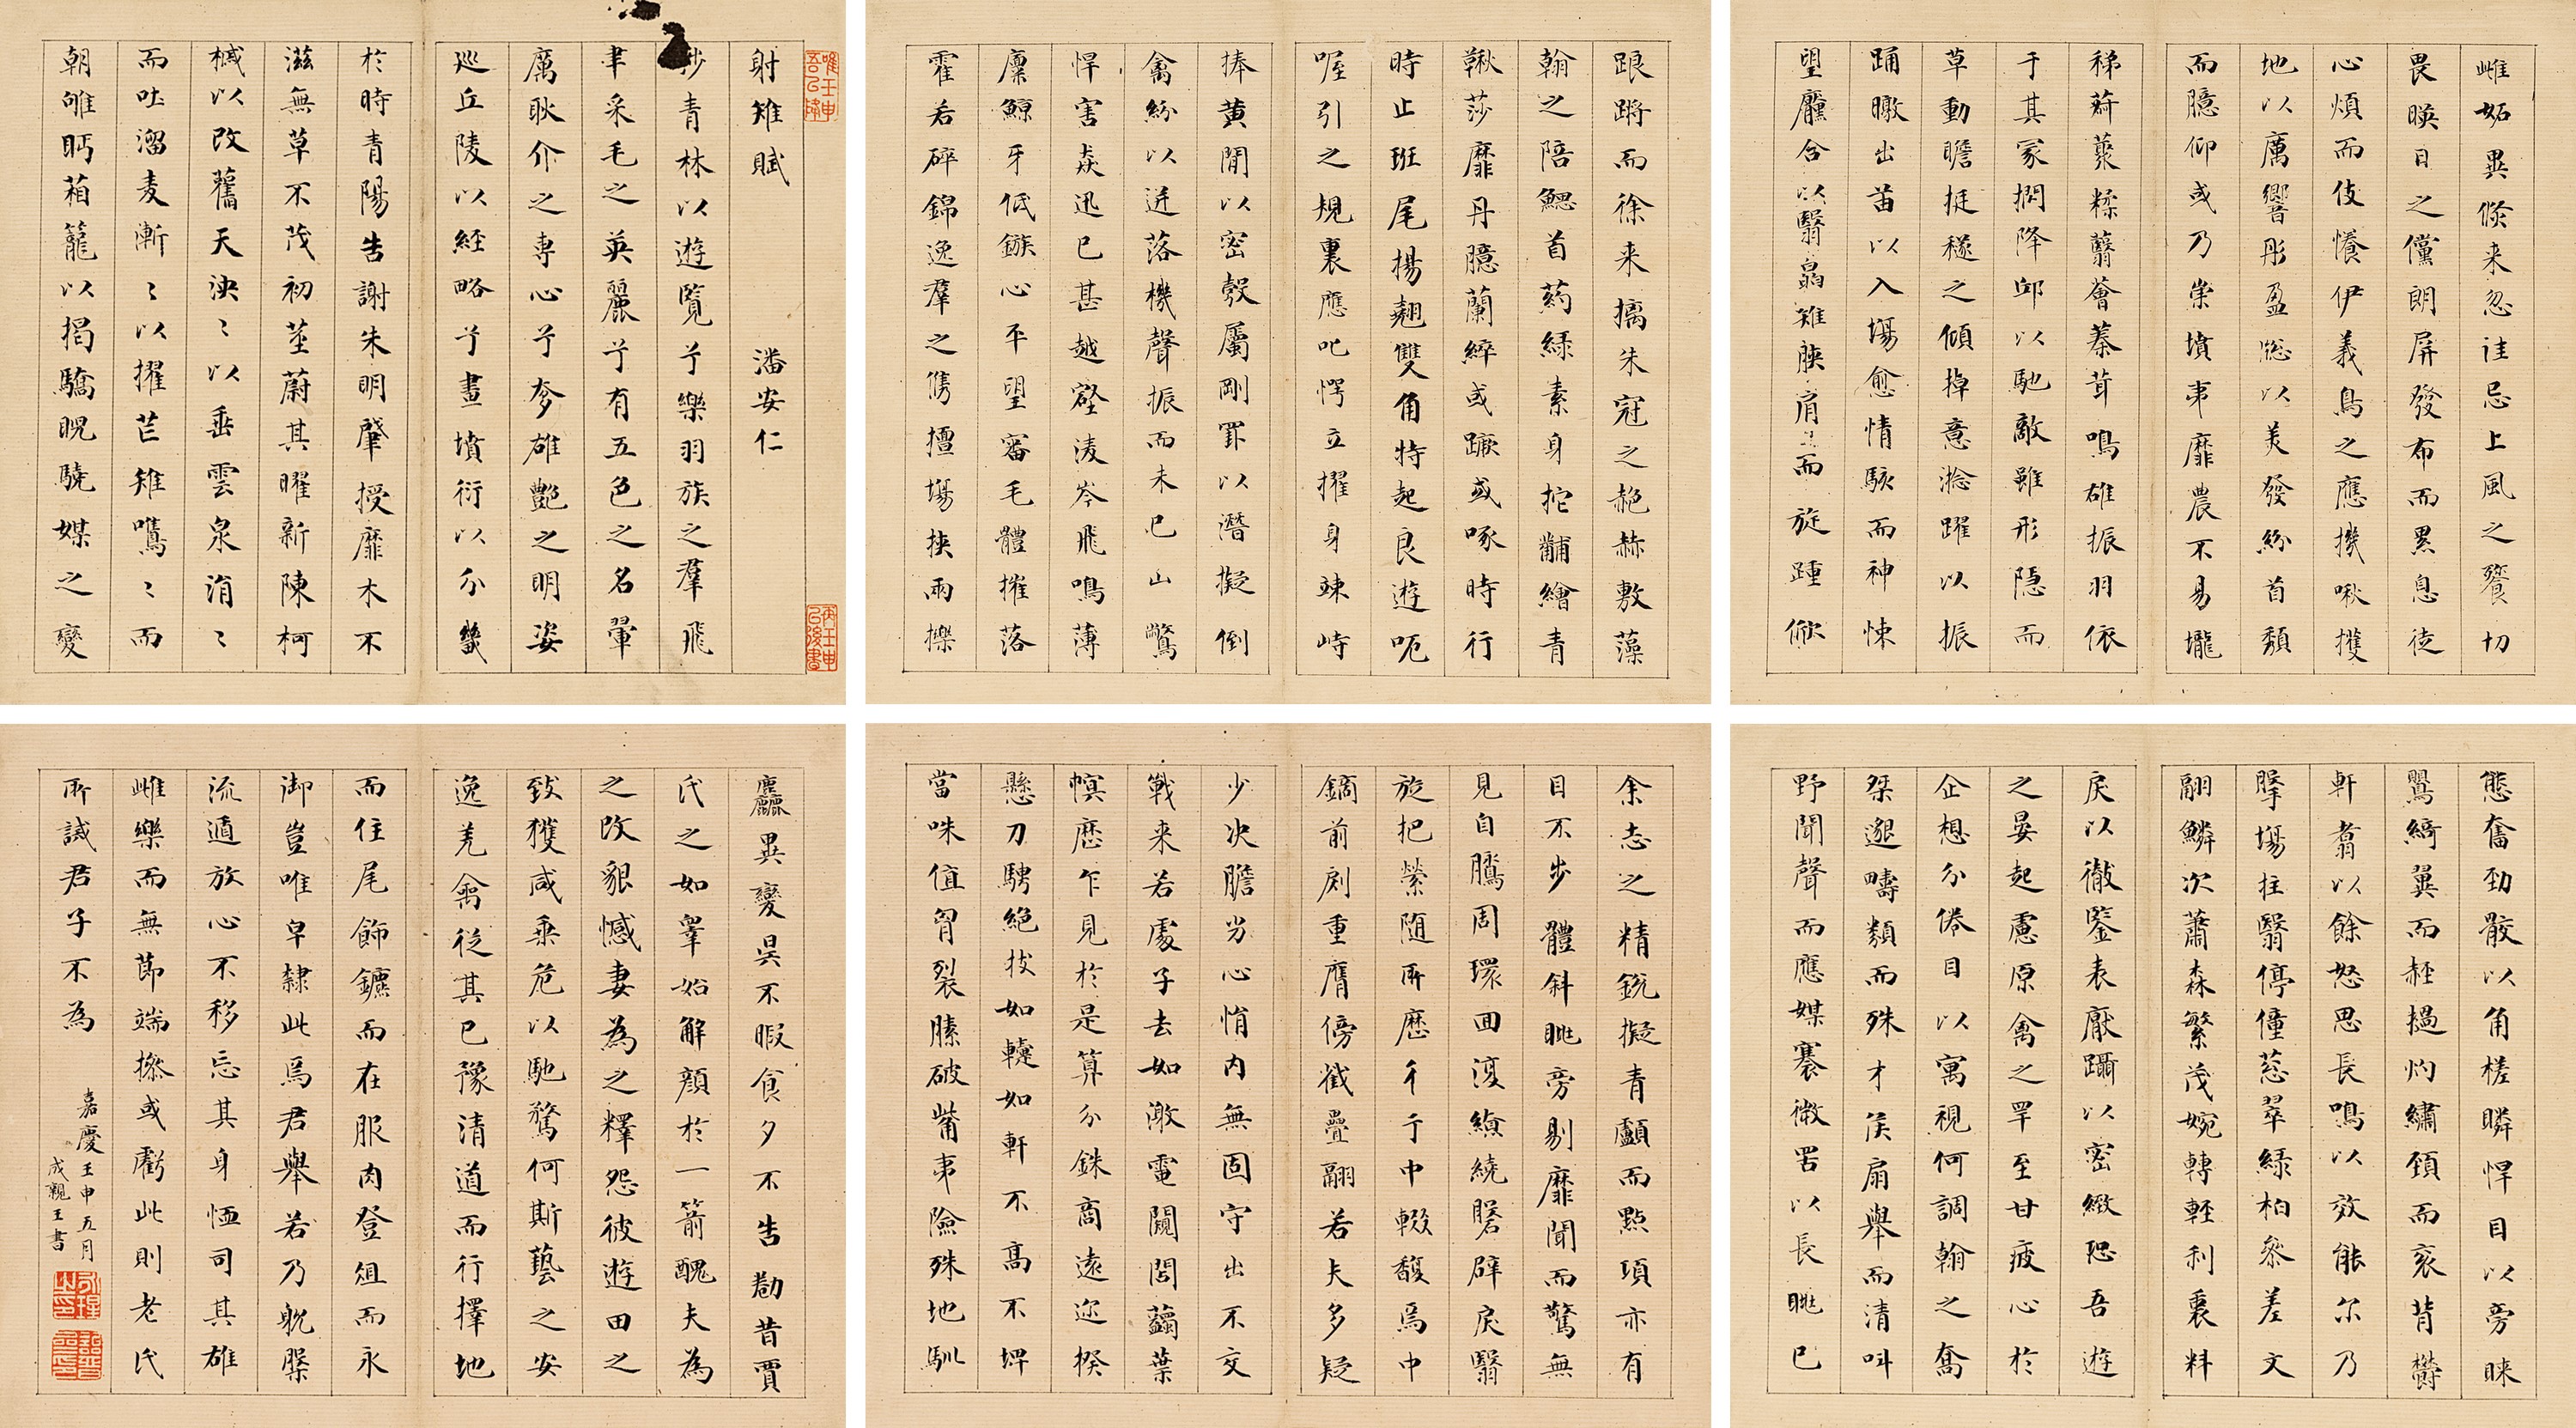 射雉賦 潘安仁
涉青林以遊覽兮樂羽族之羣飛
聿采毛之英麗兮有五色之名翬
厲耿介之専心兮奓雄艷之姱姿
巡丘陵以經略兮畫墳衍以分畿
於時青陽告謝朱明肇授靡木不
滋無草不茂初莖蔚其曜新陳柯
槭以改舊天泱〻以垂雲泉涓〻
而吐溜麦漸〻以擢芒雉鷕〻而
朝雊眄箱籠以揭驕睨驍媒之變
態奮勁骹以角槎瞵悍目以旁睞
鸎綺翼而赬撾灼繡頸而衮背鬱
軒翥以餘怒思長鳴以效能尔乃
搫場拄翳停僮葱翠綠柏參差文
翮鱗次蕭森繁茂婉轉輕利裏料
戾以徹鑒表厭躡以密緻恐吾遊
之晏起慮原禽之罕至甘疲心於
企想分倦目以寓視何調翰之喬
桀邈疇類而殊才矦扇舉而清叫
野聞聲而應媒褰微罟以長眺已
踉蹡而徐来摛朱冠之赩赫敷藻
翰之陪鰓首葯綠素身拕黼繪青
鞦莎靡丹臆蘭綷或蹶或啄時行
時止班尾揚翹雙角特起良遊呃
喔引之規裏應叱愕立擢身竦峙
捧黄閒以密彀屬剛罫以潛擬倒
禽紛以迸落機聲振而未已山鷩
悍害猋迅已甚越壑凌岑飛鳴薄
廩鯨牙低鏃心平望審毛體摧落
霍若碎錦逸羣之儁擅場挾兩櫟
雌妬異倏来忽往忌上風之餮切
畏暎日之儻朗屏發布而累息徒
心煩而伎懩伊義鳥之應機啾擭
地以厲響彤盈窻以美發紛首頹
而臆仰或乃崇墳夷靡農不易壠
稊菽藂糅蘙薈菶茸鳴雄振羽依
于其冢捫降邱以馳敵雖形隱而
草動瞻挺穟之傾掉意淰躍以振
踊暾出苗以入場愈情駭而神悚
望黶合以翳皛雉脥肩而旋踵欣
余志之精銳擬青顱而點項亦有
目不步體斜眺旁剔靡聞而驚無
見自鷕周環回復繚繞磐辟戾翳
旋把縈隨所歷彳亍中輟馥焉中
鏑前剡重膺傍截疊翮若夫多疑
少决膽劣心狷内無固守出不交
戰来若處子去如激電闚閻䕞葉
幎歷乍見於是算分銖商遠迩揆
懸刀騁絕技如轋如軒不高不埤
當咮值胷裂膆破觜夷險殊地馴
麤異變昊不暇食夕不告勌昔賈
氏之如皋始解顏於一箭醜夫為
之改貌憾妻為之釋怨彼遊田之
致獲咸乗危以馳騖何斯藝之安
逸羌禽従其已豫清道而行擇地
而住尾飾鑣而在服肉登俎而永
御豈唯皁隸此焉君舉若乃躭槃
流遁放心不移忘其身恤司其雄
雌樂而無節端操或虧此則老氏
所誡君子不為
嘉慶壬申五月
成親王書